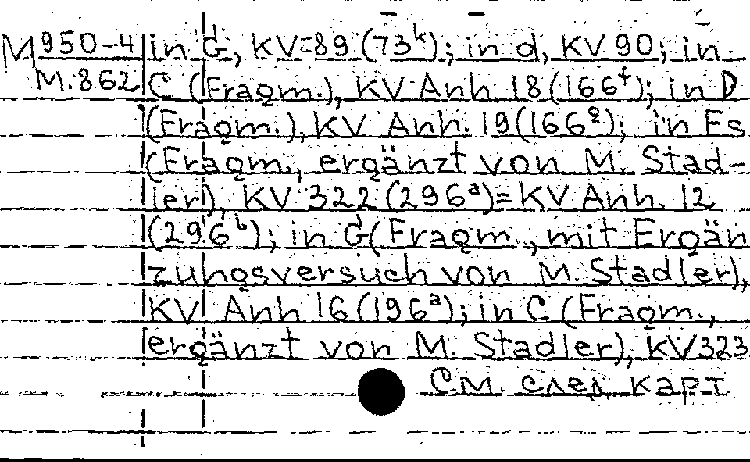 M950-4 in G, KV=89 (73ᵏ); in d, KV 90; in
M.862 C (Fragm.), KV Anh 18 (166ᶠ); in D
(Fragm.), KV Anh. 19 (166ᵍ); in Es
(Fragm., ergänzt von M. Stad-
ler), KV 322 (296ᵃ)=KV Anh. 12
(296ᵇ); in G (Fragm., mit Ergän
zungsversuch von M. Stadler),
KV Anh 16 (196ᵃ); in C (Fragm.,
ergänzt von M. Stadler), KV323
См. след карт